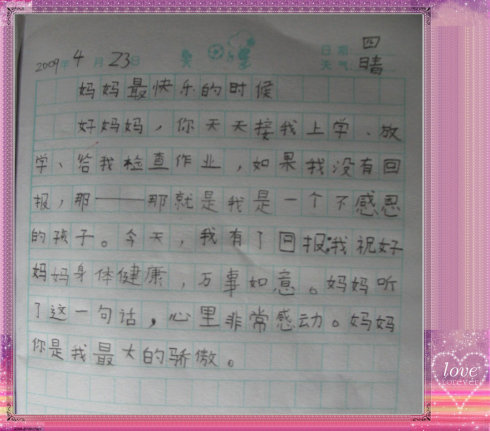 2009年4月23日 日期 四
天气 晴
妈妈最快乐的时候
好妈妈，你天天接我上学、放
学、给我检查作业，如果我没有回
报，那——那就是我是一个不感恩
的孩子。今天，我有了回报，我祝好
妈妈身体健康，万事如意。妈妈听
了这一句话，心里非常感动。妈妈
你是我最大的骄傲。
love
forever